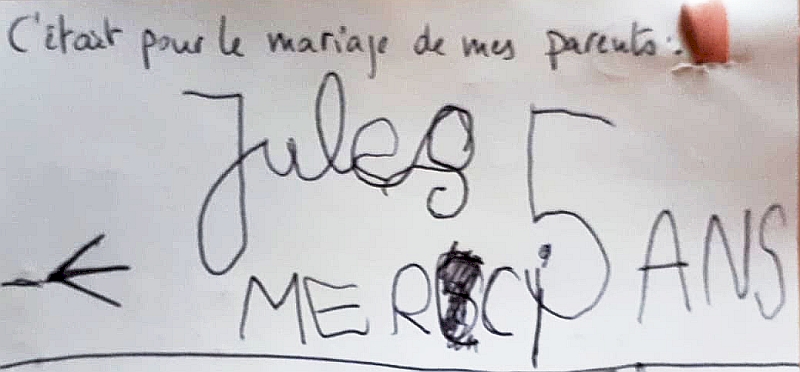 C'était pour le mariage de mes parents :
Jules 5 ANS
MERCI